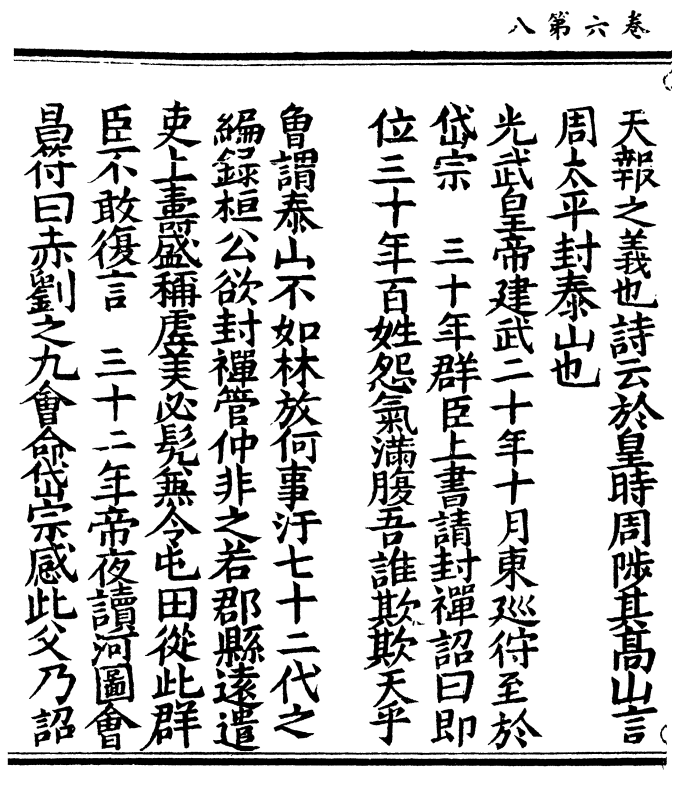 卷六第八
天報之義也詩云於皇時周陟其髙山言
周太平封泰山也
光武皇帝建武二十年十月東廵狩至於
岱宗　三十年群臣上書請封禪詔曰即
位三十年百姓怨氣滿腹吾誰欺欺天乎
曾謂泰山不如林放何事汙七十二代之
編録桓公欲封禪管仲非之若郡縣逺遣
吏上壽盛稱虗美必髠兼令屯田從此群
臣不敢復言　三十二年帝夜讀河圖會
昌符曰赤劉之九會命岱宗感此父乃詔